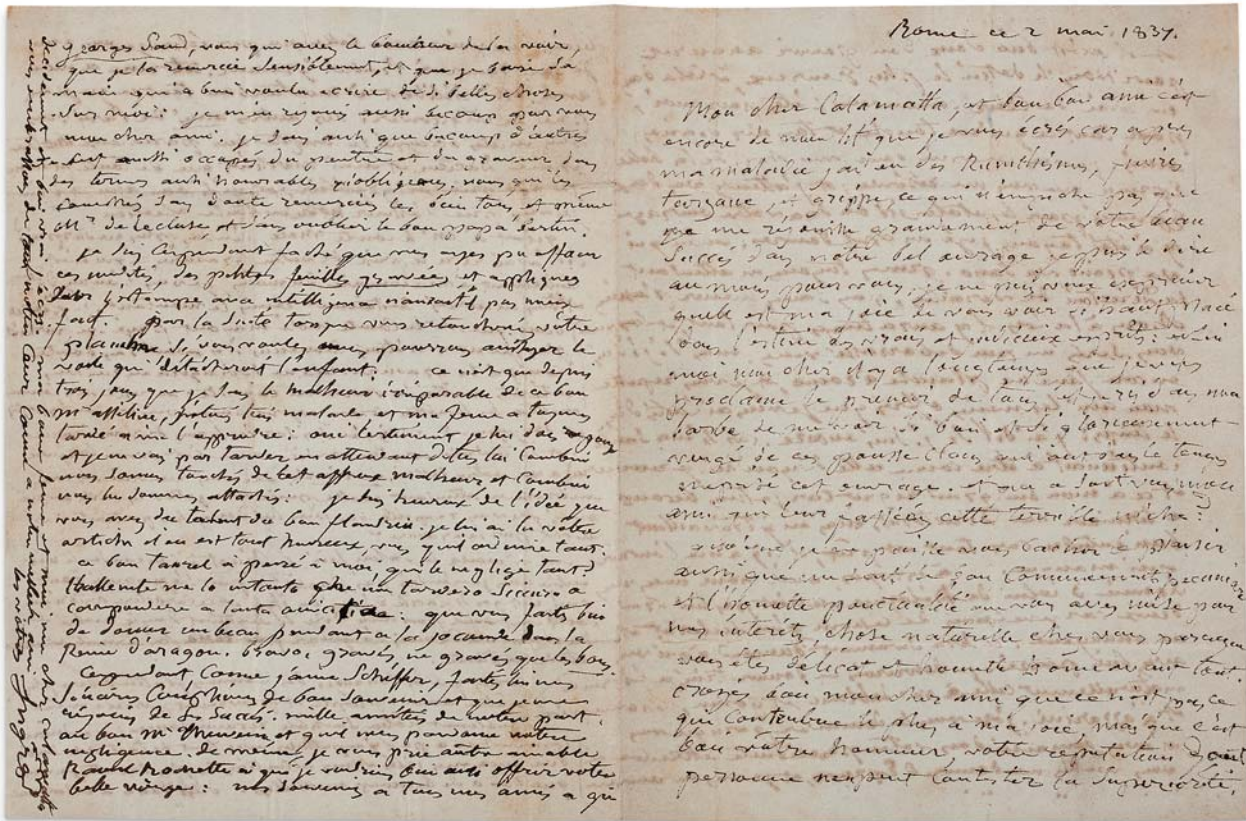 Rome ce 2 mai 1837.
Mon cher Calamatta, et bon bon ami c'est
encore de mon lit que je vous écris car après
ma maladie j'ai eu des Rumatismes, fievres
et grippe, ce qui n'empeche pas que
je me réjouisse grandement de votre beau
Succés dans notre bel ouvrage je puis le dire
au moins pour vous, je ne puis vous exprimer
quelle est ma joie de vous voir si haut placé
dans l'estime des vrais et judicieux esprits: enfin
moi mon cher il y a longtems que je vous
proclame le premier de tous, et je ris dans ma
barbe de me voir si bien et si glorieusement
vengé de ces
cet ouvrage. et que
ami cette terrible
je ne puisse vous cacher le plaisir
aussi que me fait le bon Commencement pecuniaire
et l'honnette ponctualité que vous avez mise pour
nos intérêts, chose naturelle chez vous parceque
vous êtes délicat et honnette homme avant tout.
croyés bien mon cher ami que ce n'est pas ce
qui Contribue le plus a ma joie, mais que c'est
bien votre honneur, votre réputation dont
personne ne peut Contester la Superiorité.
Georges Sand, vous qui avez le bonheur de la voir,
que je la remercie Sensiblement, et que je baise la
main qui a bien voulu ecrire de si belles choses
Sur moi: je m'en rejouis aussi beaucoup pour vous
mon cher ami. je sais aussi que beaucoup d'autres
se sont aussi occupés du peintre et du graveur dans
des termes aussi honorables vous qui les
Sans doute remerciés les bien tous et même
Mr. de lecluse et Sans oublier le bon papa bertin.
je suis Cependant faché que vous ayez pu effacer
ces nudités, des petites feuilles gravées et appliquées
Sur l'estampe avec intelligence pas mieux
fait. par la Suite lorsque vous retoucherés votre
planche Si vous voulez, vous pourrez
voile qui détacheroit l'enfant. ce n'est que depuis
trois jours que je Sais le malheur irréparable de ce bon
Mr. j'étois très malade et ma femme a toujours
tardé a me l'apprendre:
et je ne vais pas tarder en attendant dites lui Combien
nous Sommes touchés de cet affreux malheur et Combien
nous lui Sommes attachés: je Suis heureux de l'idée que
vous avez du talent du bon flandrin. je lui ai lu votre
article il en est tout heureux, vous qu'il admire tant.
ce bon taurel a pensé à moi, qui le neglige tant?
me lo intanto che non tarderò Sicuro a
corrispondere a tanta amicizia: que vous faites bien
de donner un beau pendant a la joconde dans la
Reine d'aragon. bravo, gravés, ne gravés que les bons.
Cependant Comme j'aime Scheffer, faites lui mes
Sinceres Complimens de bon Souvenir et que je me
réjouis de Ses Succés. mille amitiés de notre part
au bon Mr. et qu'il nous pardonne notre
negligence. de même, je vous prie autre aimable
Raoul Rochette à qui je voudrois bien aussi offrir votre
belle vierge: nos Souvenirs a tous nos amis a qui
ma bonne femme et moi, mon cher calamatta
nous vous embrassons de tout notre Coeur Comme a notre meilleur ami
Ingres